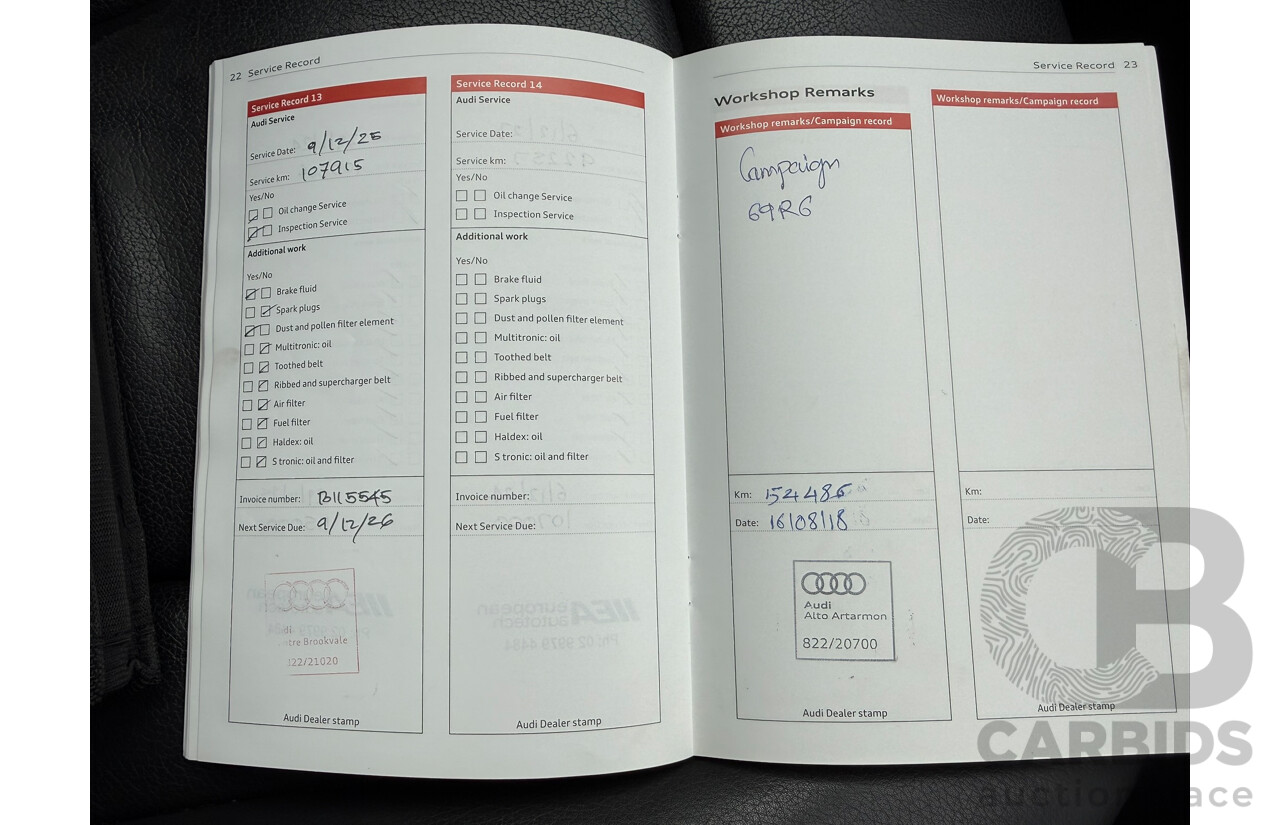 22 Service Record
Service Record 13
Audi Service
Service Date: 9/12/25
Service km: 107915
Yes/No
Oil change Service
Inspection Service
Additional work
Yes/No
Brake fluid
Spark plugs
Dust and pollen filter element
Multitronic: oil
Toothed belt
Ribbed and supercharger belt
Air filter
Fuel filter
Haldex: oil
S tronic: oil and filter
Invoice number: B115545
Next Service Due: 9/12/26
tre Brookvale
22/21020
Audi Dealer stamp
Service Record 14
Audi Service
Service Date:
Service km:
Yes/No
Oil change Service
Inspection Service
Additional work
Yes/No
Brake fluid
Spark plugs
Dust and pollen filter element
Multitronic: oil
Toothed belt
Ribbed and supercharger belt
Air filter
Fuel filter
Haldex: oil
S tronic: oil and filter
Invoice number:
Next Service Due:
Audi Dealer stamp
Service Record 23
Workshop Remarks
Workshop remarks/Campaign record
Campaign
69R6
Km: 54486
Date: 16/08/18
Audi
Alto Artarmon
822/20700
Audi Dealer stamp
Workshop remarks/Campaign record
Km:
Date:
Audi Dealer stamp
CB
CARBIDS